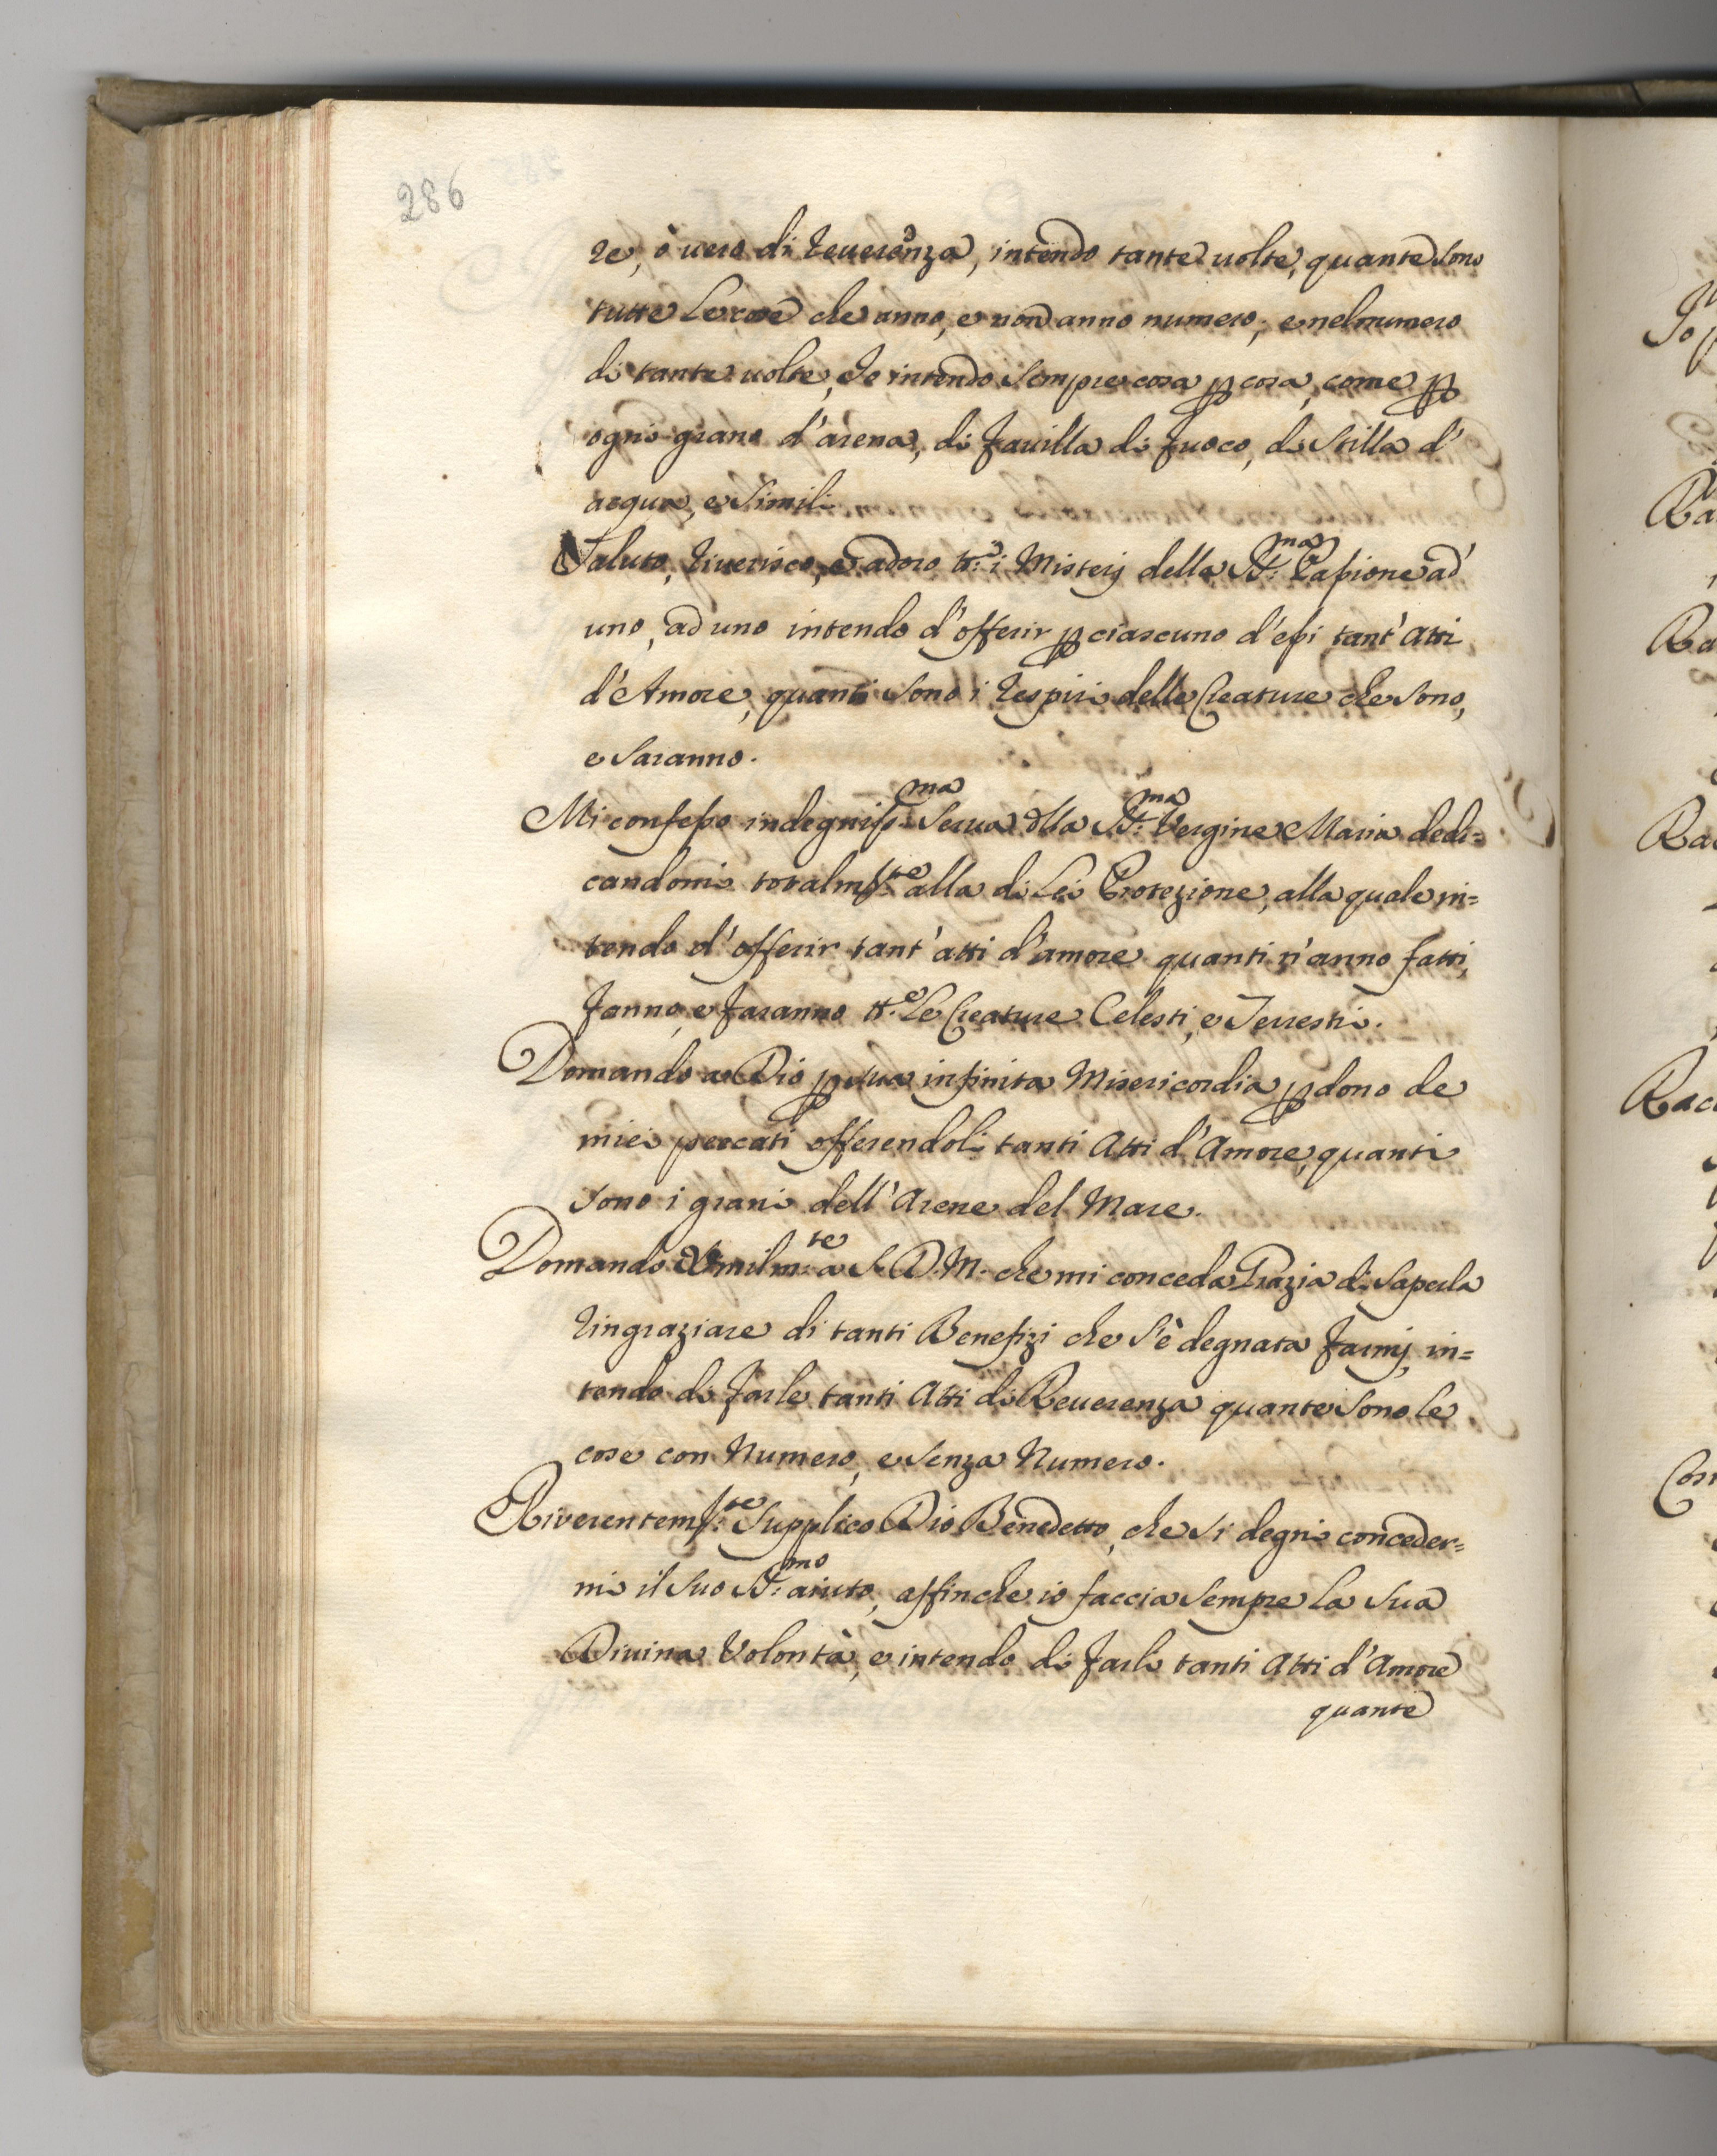 286
re, ò uero di reuerenza, intendo tante uolte, quante sono
tutte le cose che anno, e non anno numero; e nel numero
di tante uolte, Io intendo sempre cosa p cosa, come p
ogni grano d'arena, di fauilla di fuoco, di stilla d'
acqua, e simili.
Saluto, riuerisco, e adoro tt.i i Misterj della SS.ma Passione ad
uno, ad uno intendo d'offerir p ciascuno d'essi tant' Atti
d'Amore, quanti sono i respiri delle Creature che sono,
e saranno.
Mi confesso indegniss.ma Serua dlla SS.ma Vergine Maria dedi=
candomi totalm.te alla di Lei Protezione, alla quale in=
tendo d'offerir tant' atti d'amore quanti n'anno fatti,
fanno, e faranno tt.e le Creature Celesti, e Terrestri.
Domando a Dio p sua infinita Misericordia pdono de
miei peccati offerendoli tanti Atti d'Amore, quanti
sono i grani dell'Arene del Mare.
Domando Vmilm.te a S. D. M. che mi conceda Grazia di saperla
ringraziare di tanti Benefizi che s'è degnata farmj, in=
tendo di farle tanti Atti di Reuerenza quante sono le
cose con Numero, e senza Numero.
Riverentem.te Supplico Dio Benedetto, che si degni conceder=
mi il suo SS.mo aiuto, affinche io faccia sempre la sua
Diuina Volontà, e intendo di farli tanti Atti d'Amore
quante